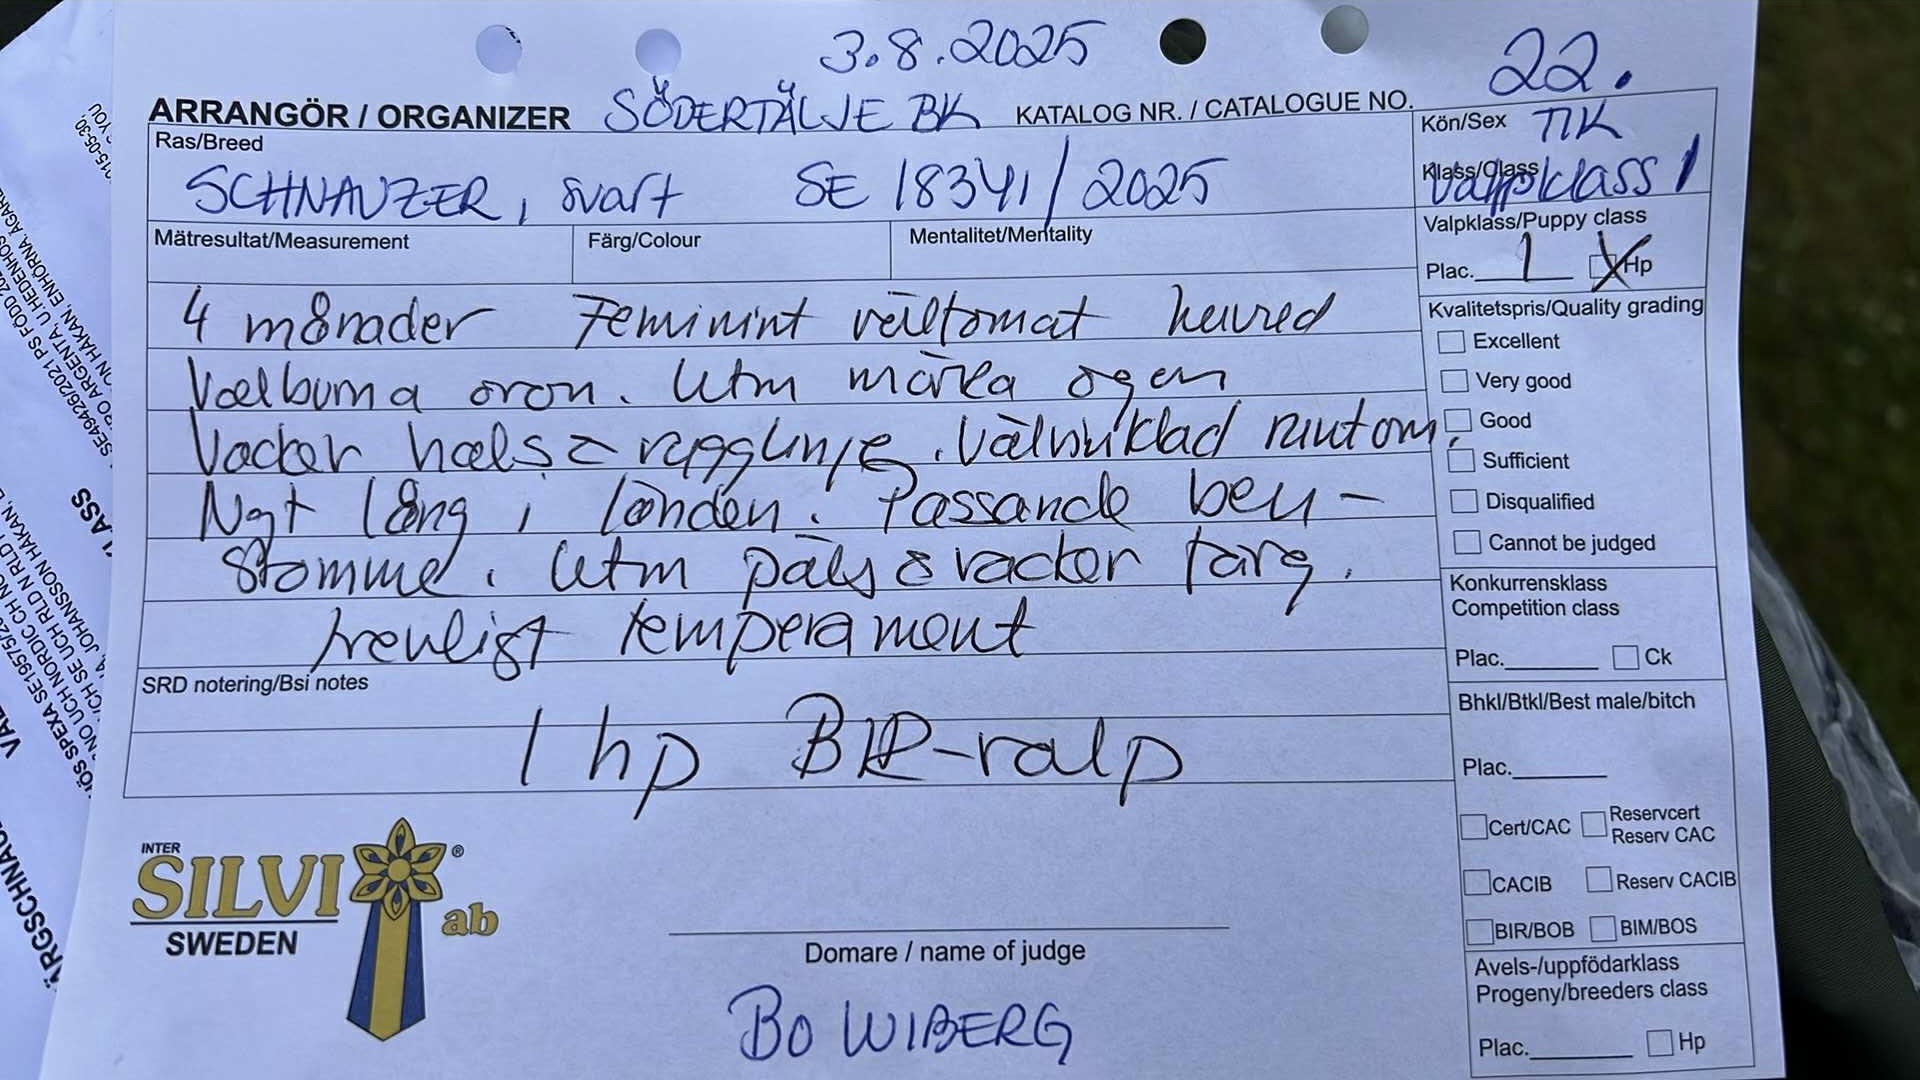 3.8.2025
22.
ARRANGÖR / ORGANIZER SÖDERTÄLJE BK KATALOG NR. / CATALOGUE NO.
Ras/Breed
SCHNAUZER, svart SE 18341/2025
Kön/Sex TIK
Klass/Class Valpklass 1
Mätresultat/Measurement Färg/Colour Mentalitet/Mentality
Valpklass/Puppy class
Plac. 1 X Hp
4 månader Feminint välformat huvud
Välburna öron. Utm mörka ögon
Vacker hals & rygglinje. Välvinklad runtom.
Ngt lång i länden. Passande ben-
stomme. Utm päls & vacker färg.
Trevligt temperament
SRD notering/Bsi notes
1 hp BIR-valp
Kvalitetspris/Quality grading
Excellent
Very good
Good
Sufficient
Disqualified
Cannot be judged
Konkurrensklass
Competition class
Plac. Ck
Bhkl/Btkl/Best male/bitch
Plac.
Cert/CAC Reservcert
Reserv CAC
CACIB Reserv CACIB
BIR/BOB BIM/BOS
Avels-/uppfödarklass
Progeny/breeders class
Plac. Hp
INTER
SILVI ® ab
SWEDEN
Domare / name of judge
BO WIBERG